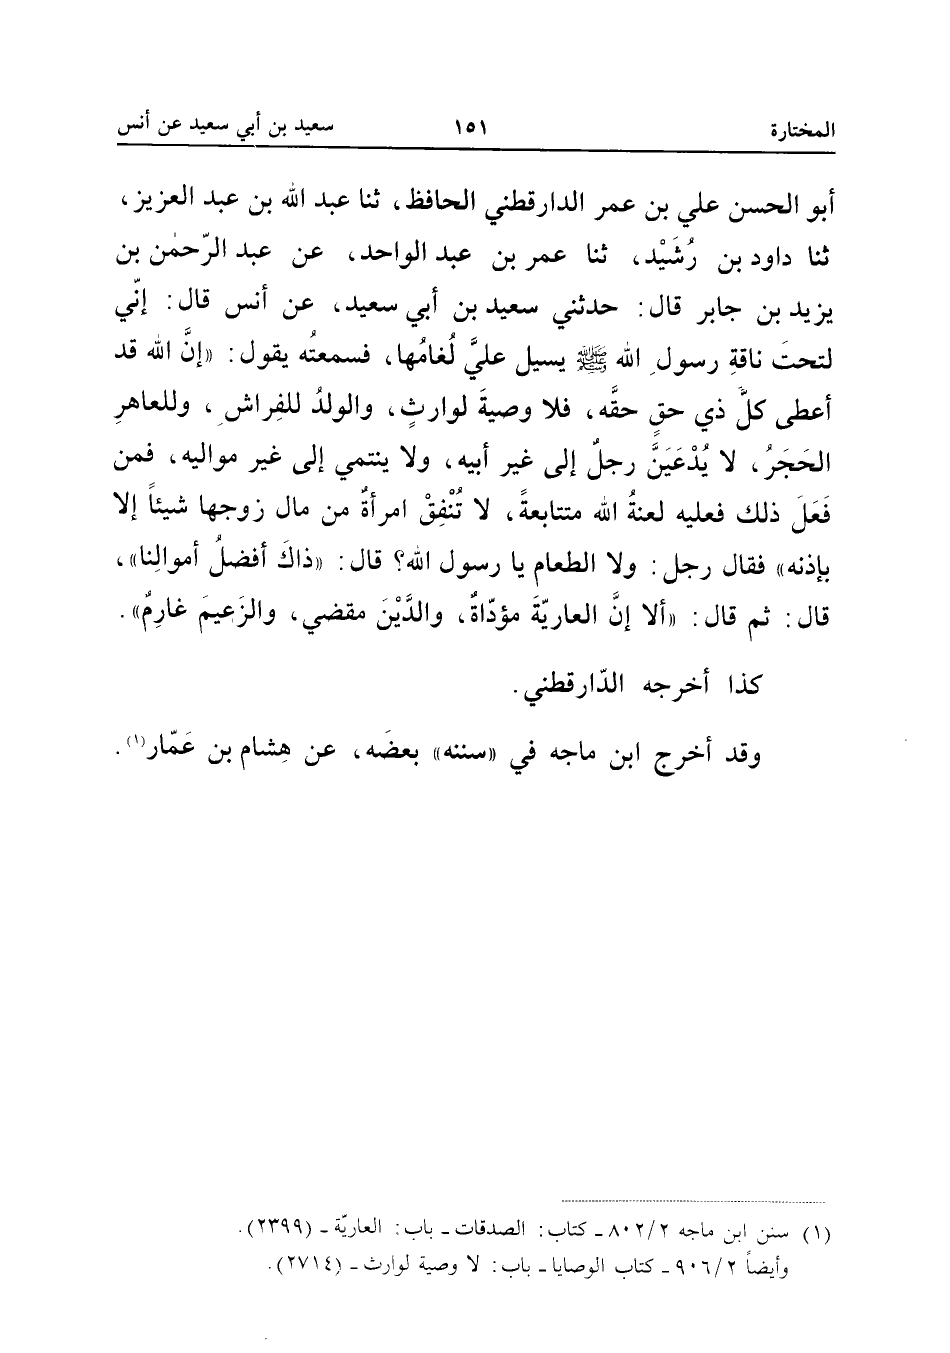 المختارة ١٥١ سعيد بن أبي سعيد عن أنس
أبو الحسن علي بن عمر الدارقطني الحافظ، ثنا عبد الله بن عبد العزيز،
ثنا داود بن رُشَيْد، ثنا عمر بن عبد الواحد، عن عبد الرّحمٰن بن
يزيد بن جابر قال: حدثني سعيد بن أبي سعيد، عن أنس قال: إنّي
لتحتَ ناقةِ رسولِ الله ﷺ يسيل عليَّ لُغامُها، فسمعتُه يقول: «إنَّ الله قد
أعطى كلَّ ذي حقٍ حقَّه، فلا وصيةَ لوارثٍ، والولدُ للفِراشِ، وللعاهرِ
الحَجَرُ، لا يُدْعَيَنَّ رجلٌ إلى غير أبيه، ولا ينتمي إلى غير مواليه، فمن
فَعَلَ ذلك فعليه لعنةُ الله متتابعةً، لا تُنْفِقْ امرأةٌ من مال زوجها شيئاً إلا
بإذنه» فقال رجل: ولا الطعام يا رسول الله؟ قال: «ذاكَ أفضلُ أموالِنا»،
قال: ثم قال: «ألا إنَّ العاريّةَ مؤدّاةٌ، والدَّيْنَ مقضي، والزَعيمَ غارِمٌ».
كذا أخرجه الدّارقطني.
وقد أخرج ابن ماجه في «سننه» بعضَه، عن هِشام بن عَمّار(١).
(١) سنن ابن ماجه ٨٠٢/٢ ـ كتاب: الصدقات ـ باب: العاريّة ـ (٢٣٩٩).
وأيضاً ٩٠٦/٢ ـ كتاب الوصايا ـ باب: لا وصية لوارث ـ (٢٧١٤).